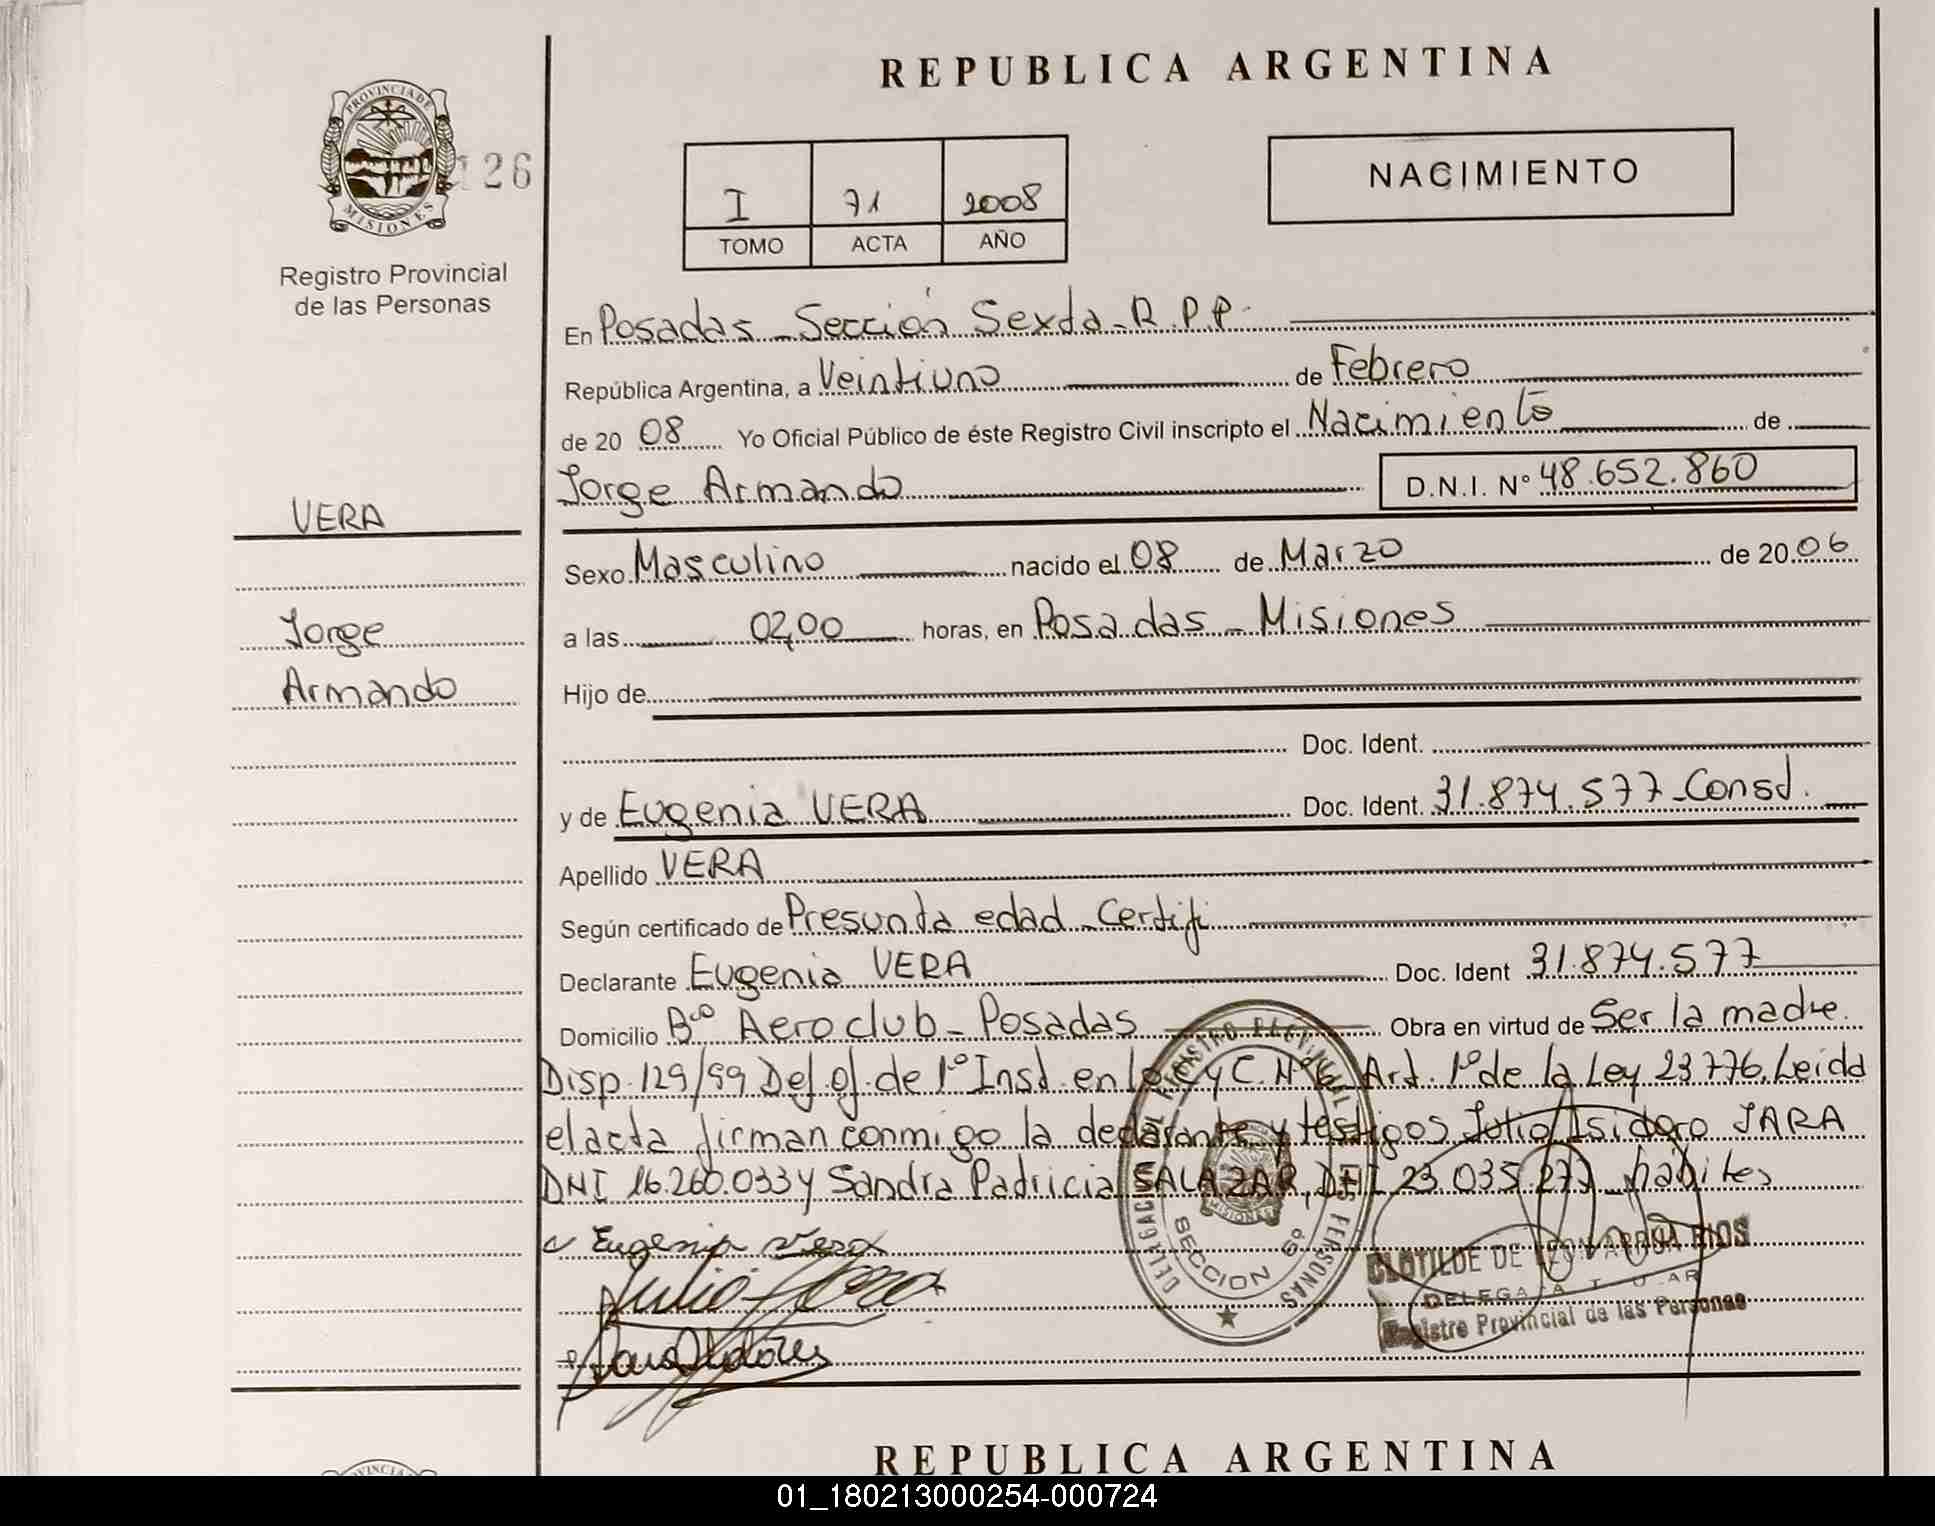 REPUBLICA ARGENTINA
PROVINCIA DE
MISIONES
126
Registro Provincial
de las Personas
I 71 2008
TOMO ACTA AÑO
NACIMIENTO
En Posadas - Sección Sexta - R.P.P.
República Argentina, a Veintiuno de Febrero
de 20 08 Yo Oficial Público de éste Registro Civil inscripto el Nacimiento de
Jorge Armando D.N.I. Nº 48.652.860
VERA
Jorge
Armando
Sexo Masculino nacido el 08 de Marzo de 20 06
a las 02,00 horas, en Posadas - Misiones
Hijo de
Doc. Ident.
y de Eugenia VERA Doc. Ident. 31.874.577 - Const.
Apellido VERA
Según certificado de Presunta edad - Certifi
Declarante Eugenia VERA Doc. Ident 31.874.577
Domicilio Bº Aeroclub - Posadas Obra en virtud de Ser la madre.
Disp. 129/99 Def. of. de 1º Inst. en lo C y C. Nº 6 - Art. 1º de la Ley 23.776. Leida
el acta firman conmigo la declarante y testigos Julio Isidoro JARA
DNI 16.260.033 y Sandra Patricia SALAZAR, DNI 23.035.277 - hábiles
Eugenia Vera
Julio Jara
DELEGACION REGISTRO PROVINCIAL PERSONAS
MISIONES
SECCION 6º
CLOTILDE DE LEON ARRUA RIOS
DELEGADA TITULAR
Registro Provincial de las Personas
REPUBLICA ARGENTINA
01_180213000254-000724